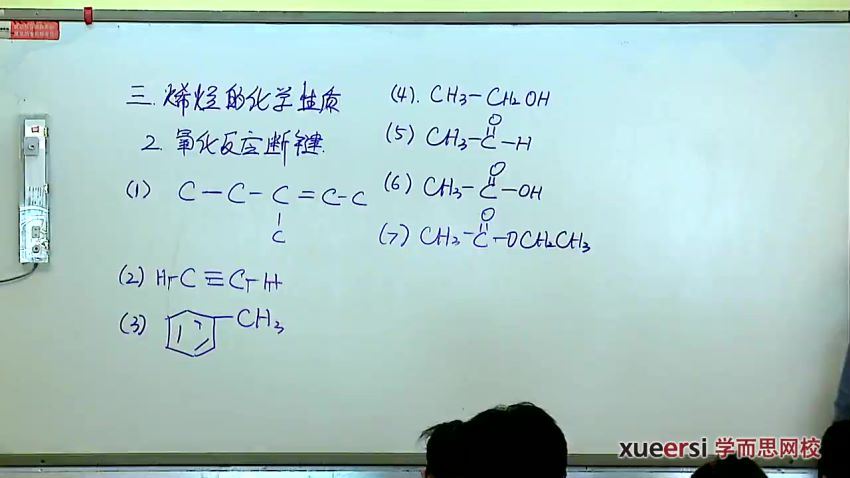 三. 烯烃的化学性质
2. 氧化反应断键.
(1) C-C-C=C-C
C
(2) H-C≡C-H
(3) CH3
(4). CH3-CH2OH
O
(5) CH3-C-H
O
(6) CH3-C-OH
O
(7) CH3-C-OCH2CH3
xueersi 学而思网校